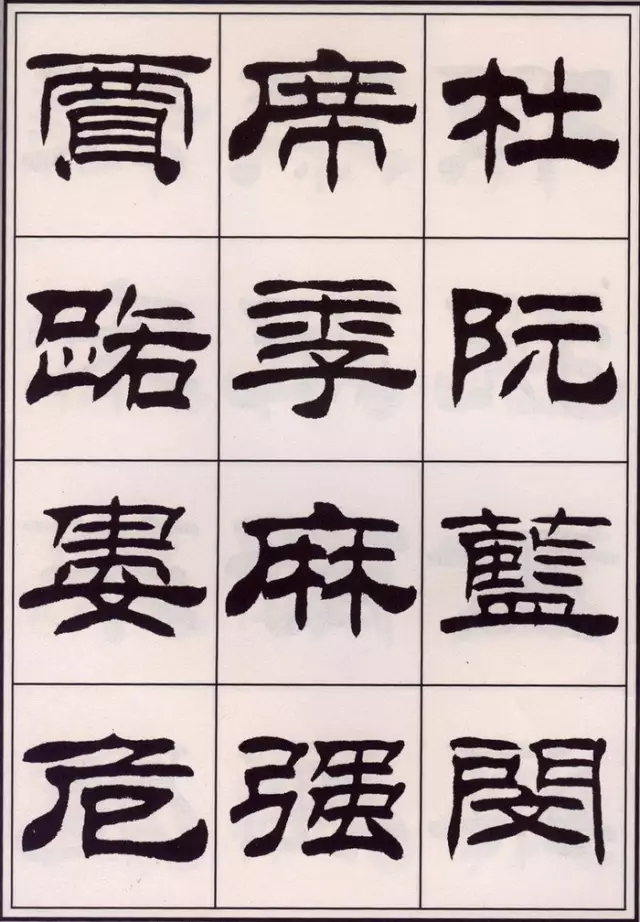 杜阮藍閔
席季麻强
賈路婁危